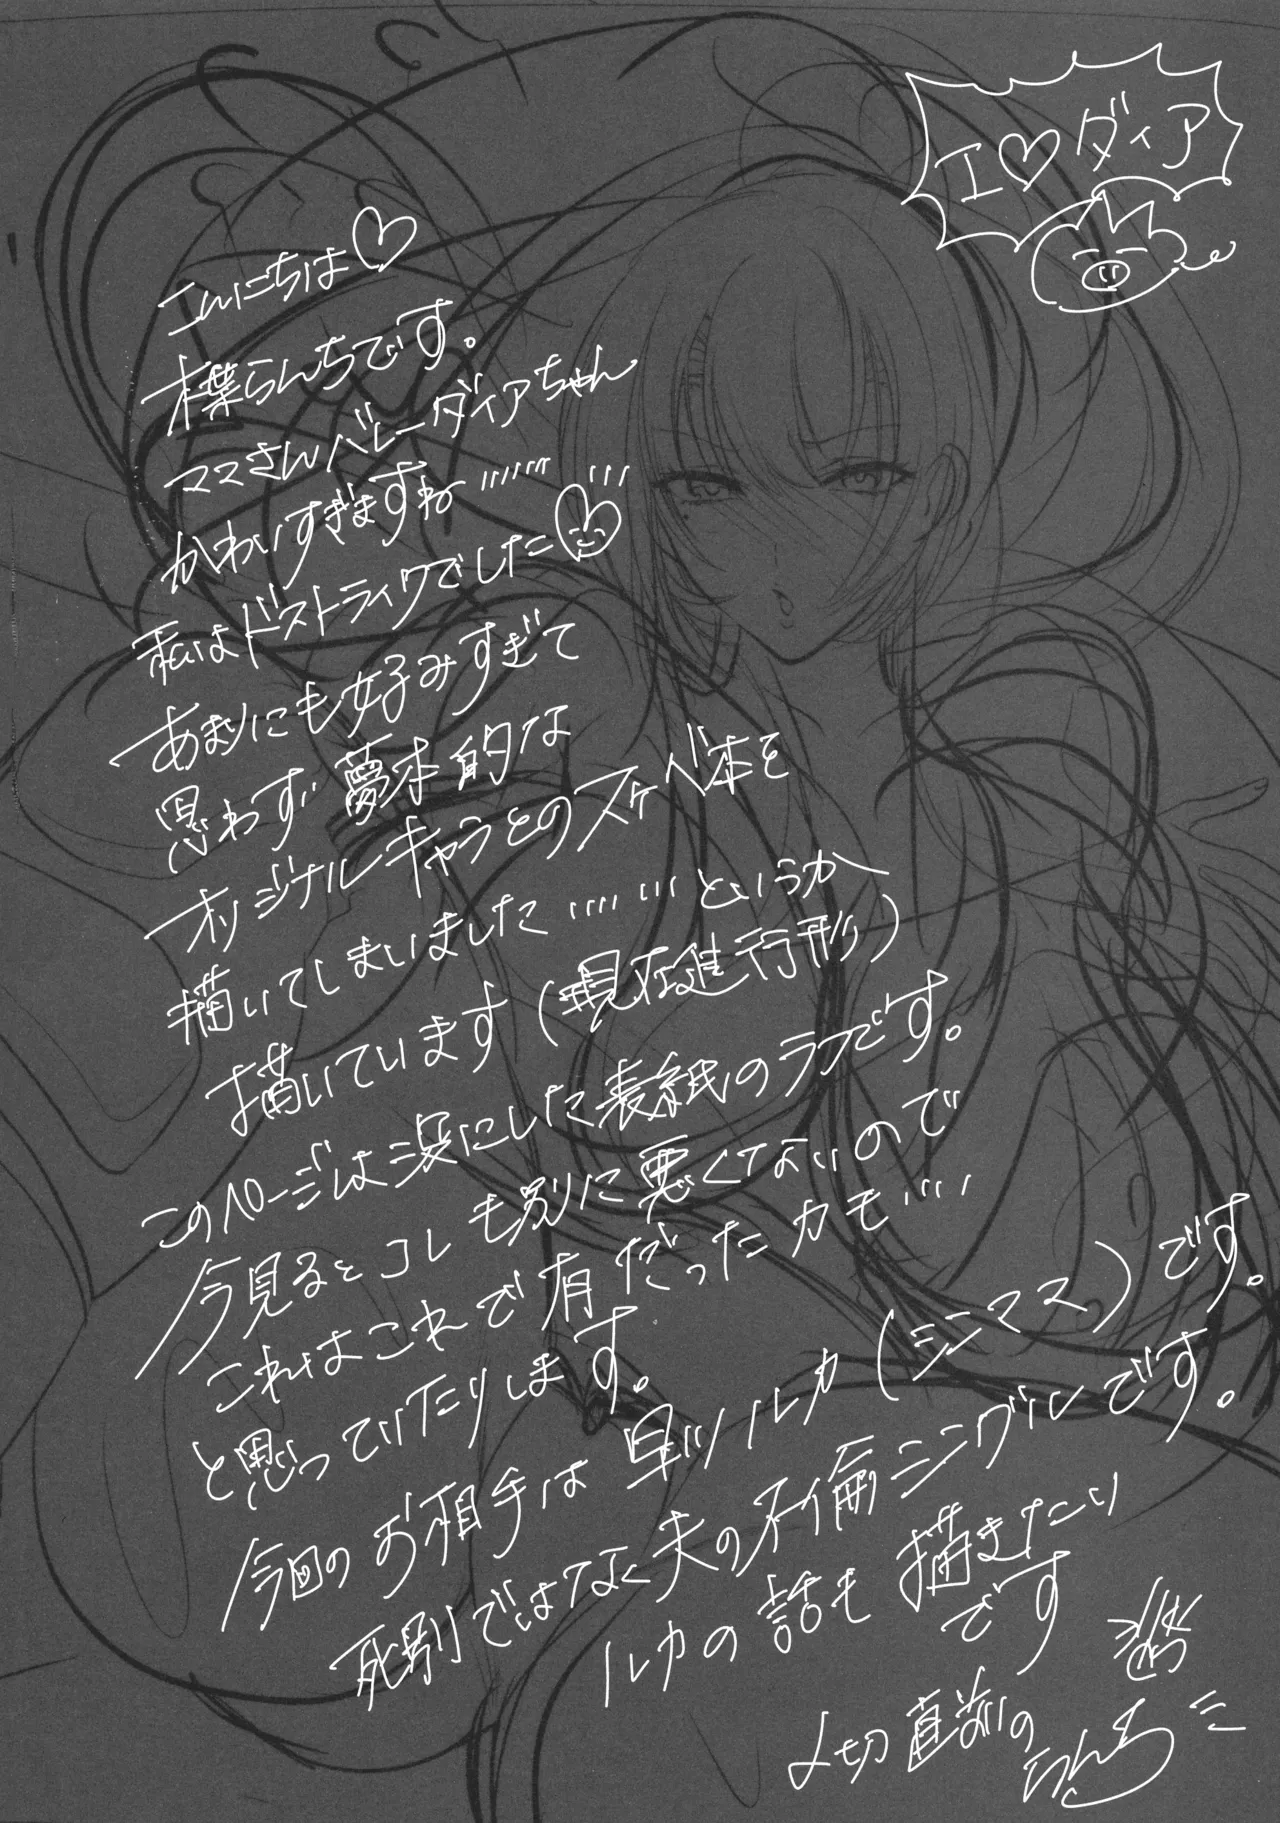 エ♡ダイア
こんにちは♡
楪らんちです。
ママさんバレーダイアちゃん
かわいすぎますね……
私はドストライクでした
あまりにも好みすぎて
思わず夢本的な
オリジナルキャラとのスケベ本を
描いてしまいました……というか
描いています(現在進行形)
このページは没にした表紙のラフです。
今見るとコレも別に悪くてないので
これはこれで有だったカモ…
と思っていたりします。
今回のお相手は早ツルカ(シニマス)です。
死別ではなく夫の不倫シングルです。
ルカの話も描きたい
です
〆切直前の
らんち